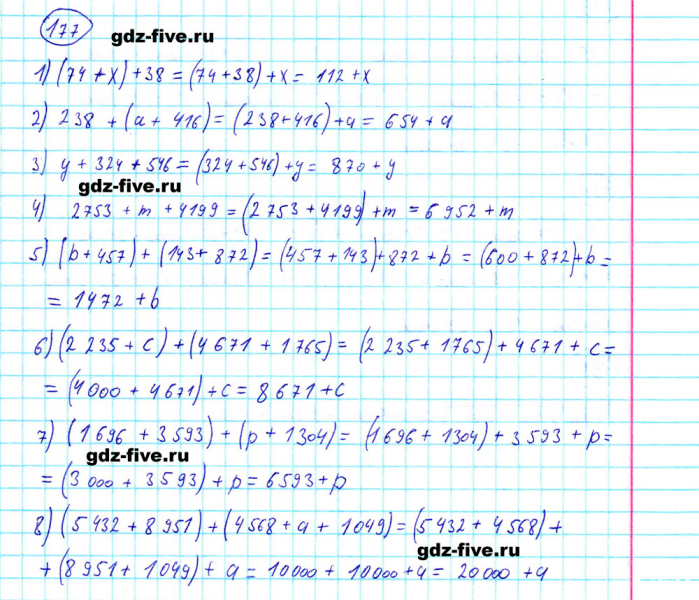 177 gdz-five.ru
1) (74 + x) + 38 = (74 + 38) + x = 112 + x
2) 238 + (a + 416) = (238 + 416) + a = 654 + a
3) y + 324 + 546 = (324 + 546) + y = 870 + y
gdz-five.ru
4) 2753 + m + 4199 = (2 753 + 4199) + m = 6 952 + m
5) (b + 457) + (143 + 872) = (457 + 143) + 872 + b = (600 + 872) + b =
= 1472 + b
6) (2 235 + c) + (4 671 + 1765) = (2 235 + 1765) + 4 671 + c =
= (4 000 + 4 671) + c = 8 671 + c
7) (1 696 + 3 593) + (p + 1304) = (1 696 + 1304) + 3 593 + p =
gdz-five.ru
= (3 000 + 3 593) + p = 6 593 + p
8) (5 432 + 8 951) + (4 568 + a + 1049) = (5 432 + 4 568) +
gdz-five.ru
+ (8 951 + 1 049) + a = 10 000 + 10 000 + a = 20 000 + a